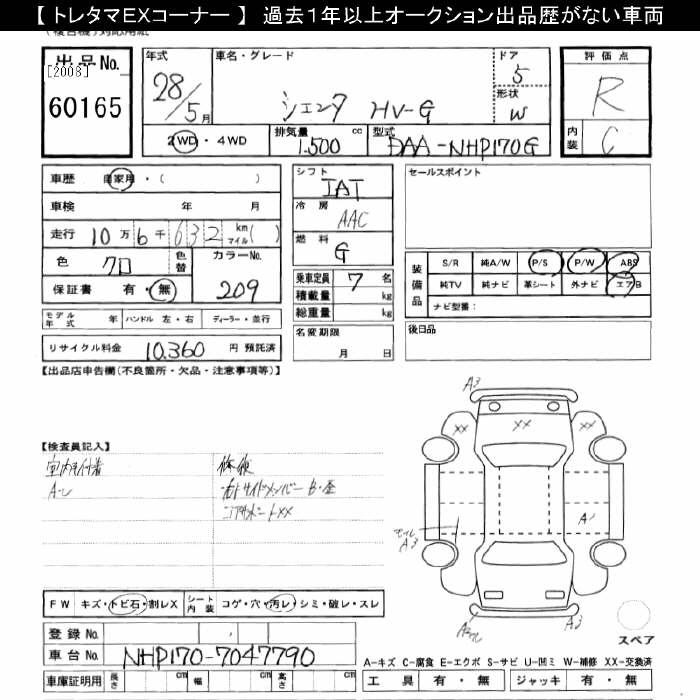 【 トレタマEXコーナー 】 過去1年以上オークション出品歴がない車両
出品No.
[2008]
60165
年式 車名・グレード ドア
28/5月 シエンタ HV-G 5
形状
W
2WD・4WD 排気量 1.500 cc 型式 DAA-NHP170G
評価点
R
内装 C
車歴 自家用・( )
車検 年 月
走行 10万6千632 km マイル( )
色 クロ 色替 カラーNo.
保証書 有・無 209
モデル年式 年 ハンドル 左・右 ディーラー・並行
リサイクル料金 10,360 円 預託済
シフト
IAT
冷房
AAC
燃料
G
乗車定員 7 名
積載量 kg
総重量 kg
名変期限
月 日
セールスポイント
装備品 S/R 純A/W P/S P/W ABS
純TV 純ナビ 革シート 外ナビ エアB
ナビ型番:
後日品
【出品店申告欄(不良箇所・欠品・注意事項等)】
【検査員記入】
A3
XX XX XX
A1
A3
A3
スペア
FW キズ・トビ石・割レX シート内装 コゲ・穴・汚レ・シミ・破レ・スレ
登録No.
車台No. NHP170-7047790
車庫証明用 長さ cm 幅 cm 高さ cm
A-キズ C-腐食 E-エクボ S-サビ U-凹ミ W-補修 XX-交換済
工具 有・無 ジャッキ 有・無